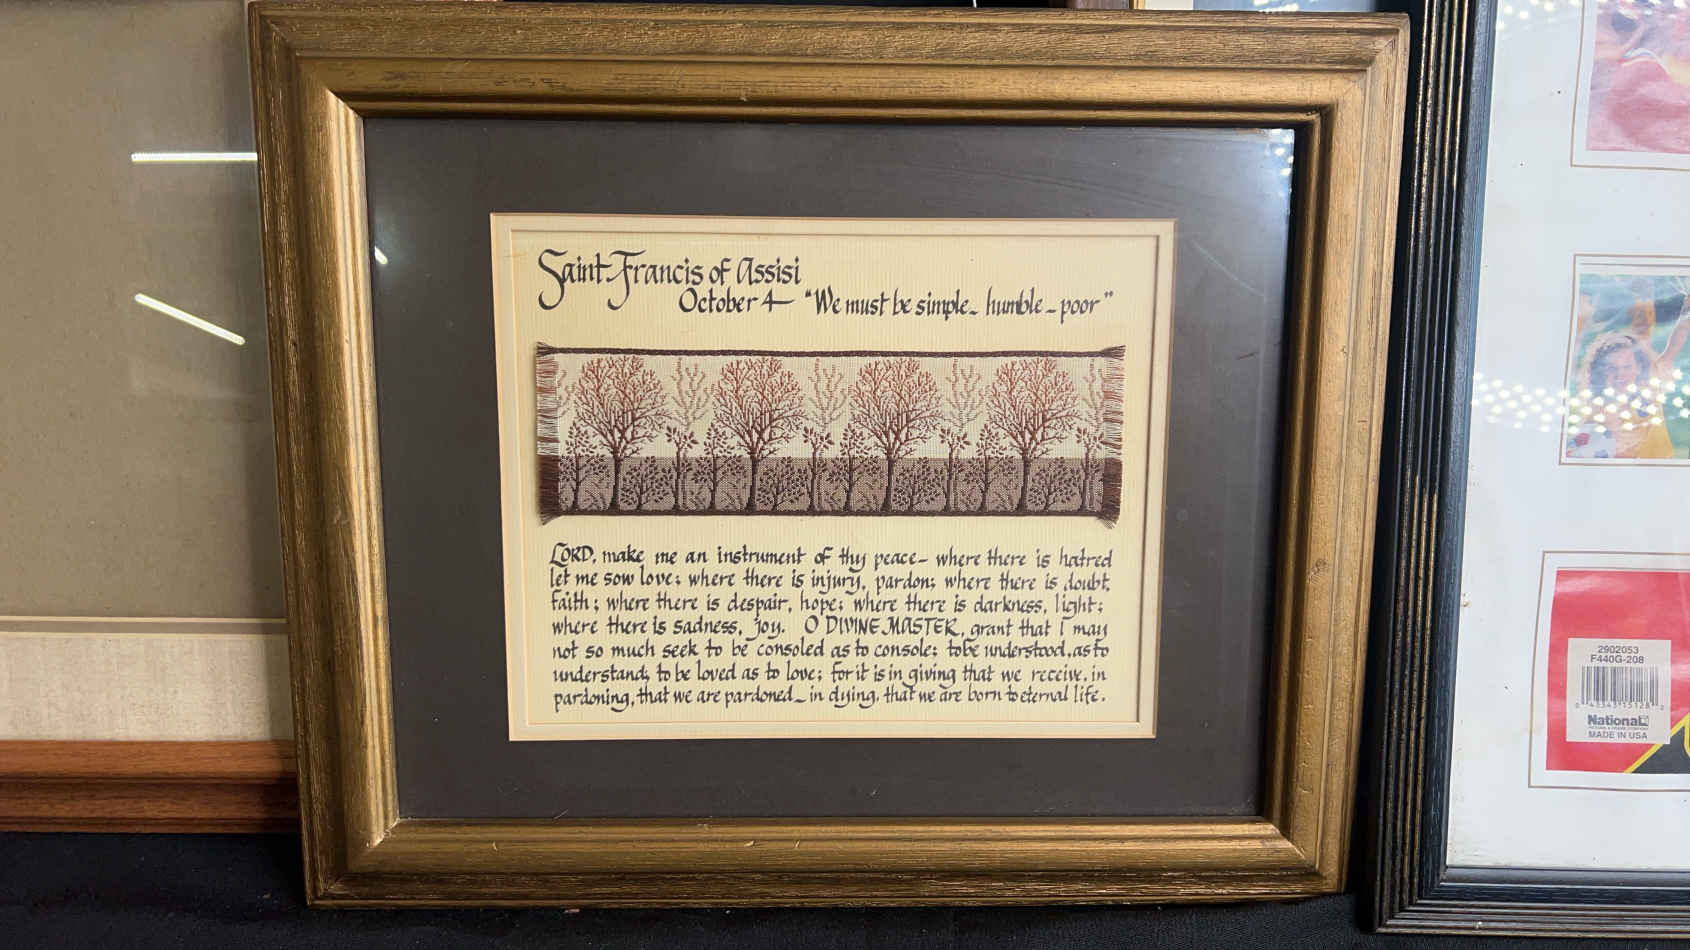 Saint Francis of Assisi
October 4 — "We must be simple - humble - poor"
LORD, make me an instrument of thy peace - where there is hatred
let me sow love; where there is injury, pardon; where there is doubt,
faith; where there is despair, hope; where there is darkness, light;
where there is sadness, joy. O DIVINE MASTER, grant that I may
not so much seek to be consoled as to console; to be understood, as to
understand; to be loved as to love; for it is in giving that we receive, in
pardoning, that we are pardoned - in dying, that we are born to eternal life.
2902053
F440G-208
National
MADE IN USA